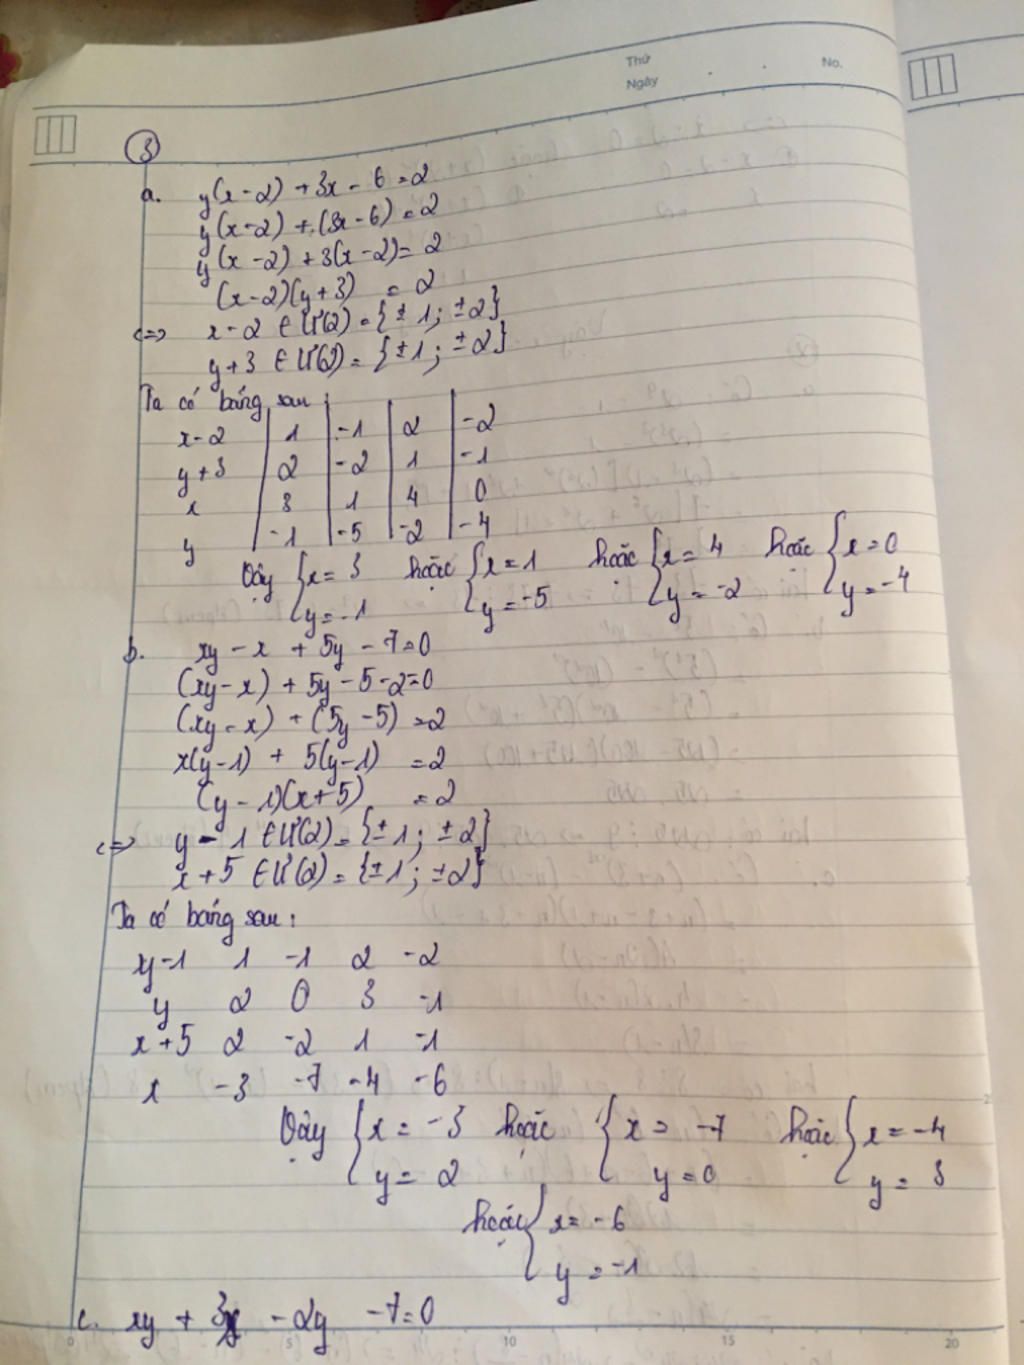 Thứ
Ngày
No.
3
a. y(x-2) + 3x - 6 = 2
y(x-2) + (3x-6) = 2
y(x-2) + 3(x-2) = 2
(x-2)(y+3) = 2
<=> x-2 ∈ Ư(2) = {±1; ±2}
y+3 ∈ Ư(2) = {±1; ±2}
Ta có bảng sau
x-2 | 1 | -1 | 2 | -2
y+3 | 2 | -2 | 1 | -1
x | 3 | 1 | 4 | 0
y | -1 | -5 | -2 | -4
Vậy { x = 3 hoặc { x = 1 hoặc { x = 4 hoặc { x = 0
y = -1 y = -5 y = -2 y = -4
b. xy - x + 5y - 7 = 0
(xy - x) + 5y - 5 - 2 = 0
(xy - x) + (5y - 5) = 2
x(y-1) + 5(y-1) = 2
(y-1)(x+5) = 2
<=> y - 1 ∈ Ư(2) = {±1; ±2}
x + 5 ∈ Ư(2) = {±1; ±2}
Ta có bảng sau:
y-1 1 -1 2 -2
y 2 0 3 -1
x+5 2 -2 1 -1
x -3 -7 -4 -6
Vậy { x = -3 hoặc { x = -7 hoặc { x = -4
y = 2 y = 0 y = 3
hoặc { x = -6
y = -1
c. xy + 3x - 2y - 7 = 0
0 5 10 15 20